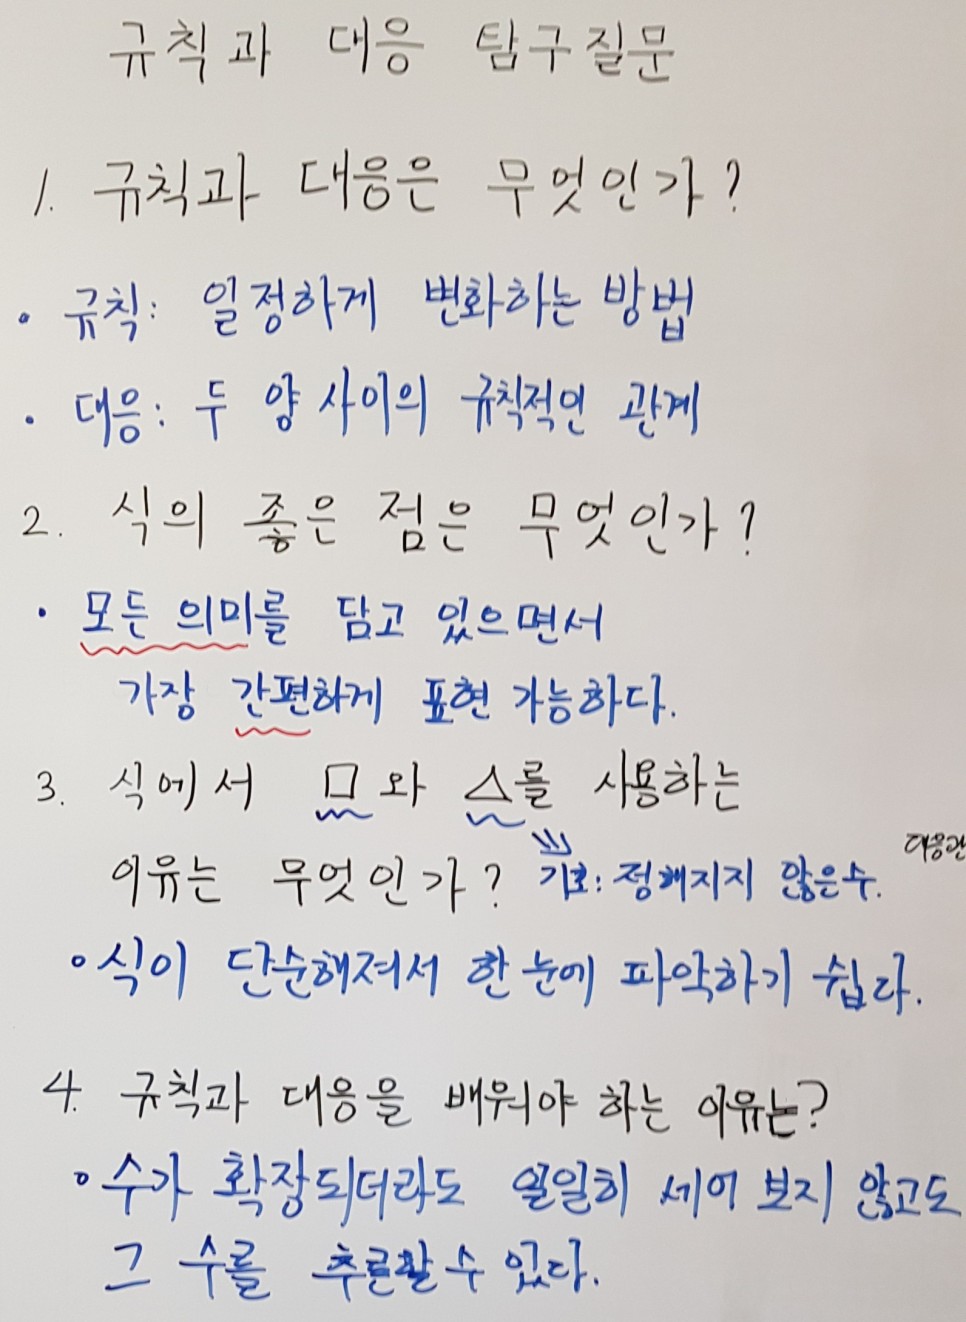 규칙과 대응 탐구질문
1. 규칙과 대응은 무엇인가?
• 규칙: 일정하게 변화하는 방법
• 대응: 두 양 사이의 규칙적인 관계
2. 식의 좋은 점은 무엇인가?
• 모든 의미를 담고 있으면서
가장 간편하게 표현 가능하다.
3. 식에서 □와 △를 사용하는
이유는 무엇인가? 기호: 정해지지 않은 수.
대응관
• 식이 단순해져서 한 눈에 파악하기 쉽다.
4. 규칙과 대응을 배워야 하는 이유는?
• 수가 확장되더라도 일일히 세어 보지 않고도
그 수를 추론할 수 있다.